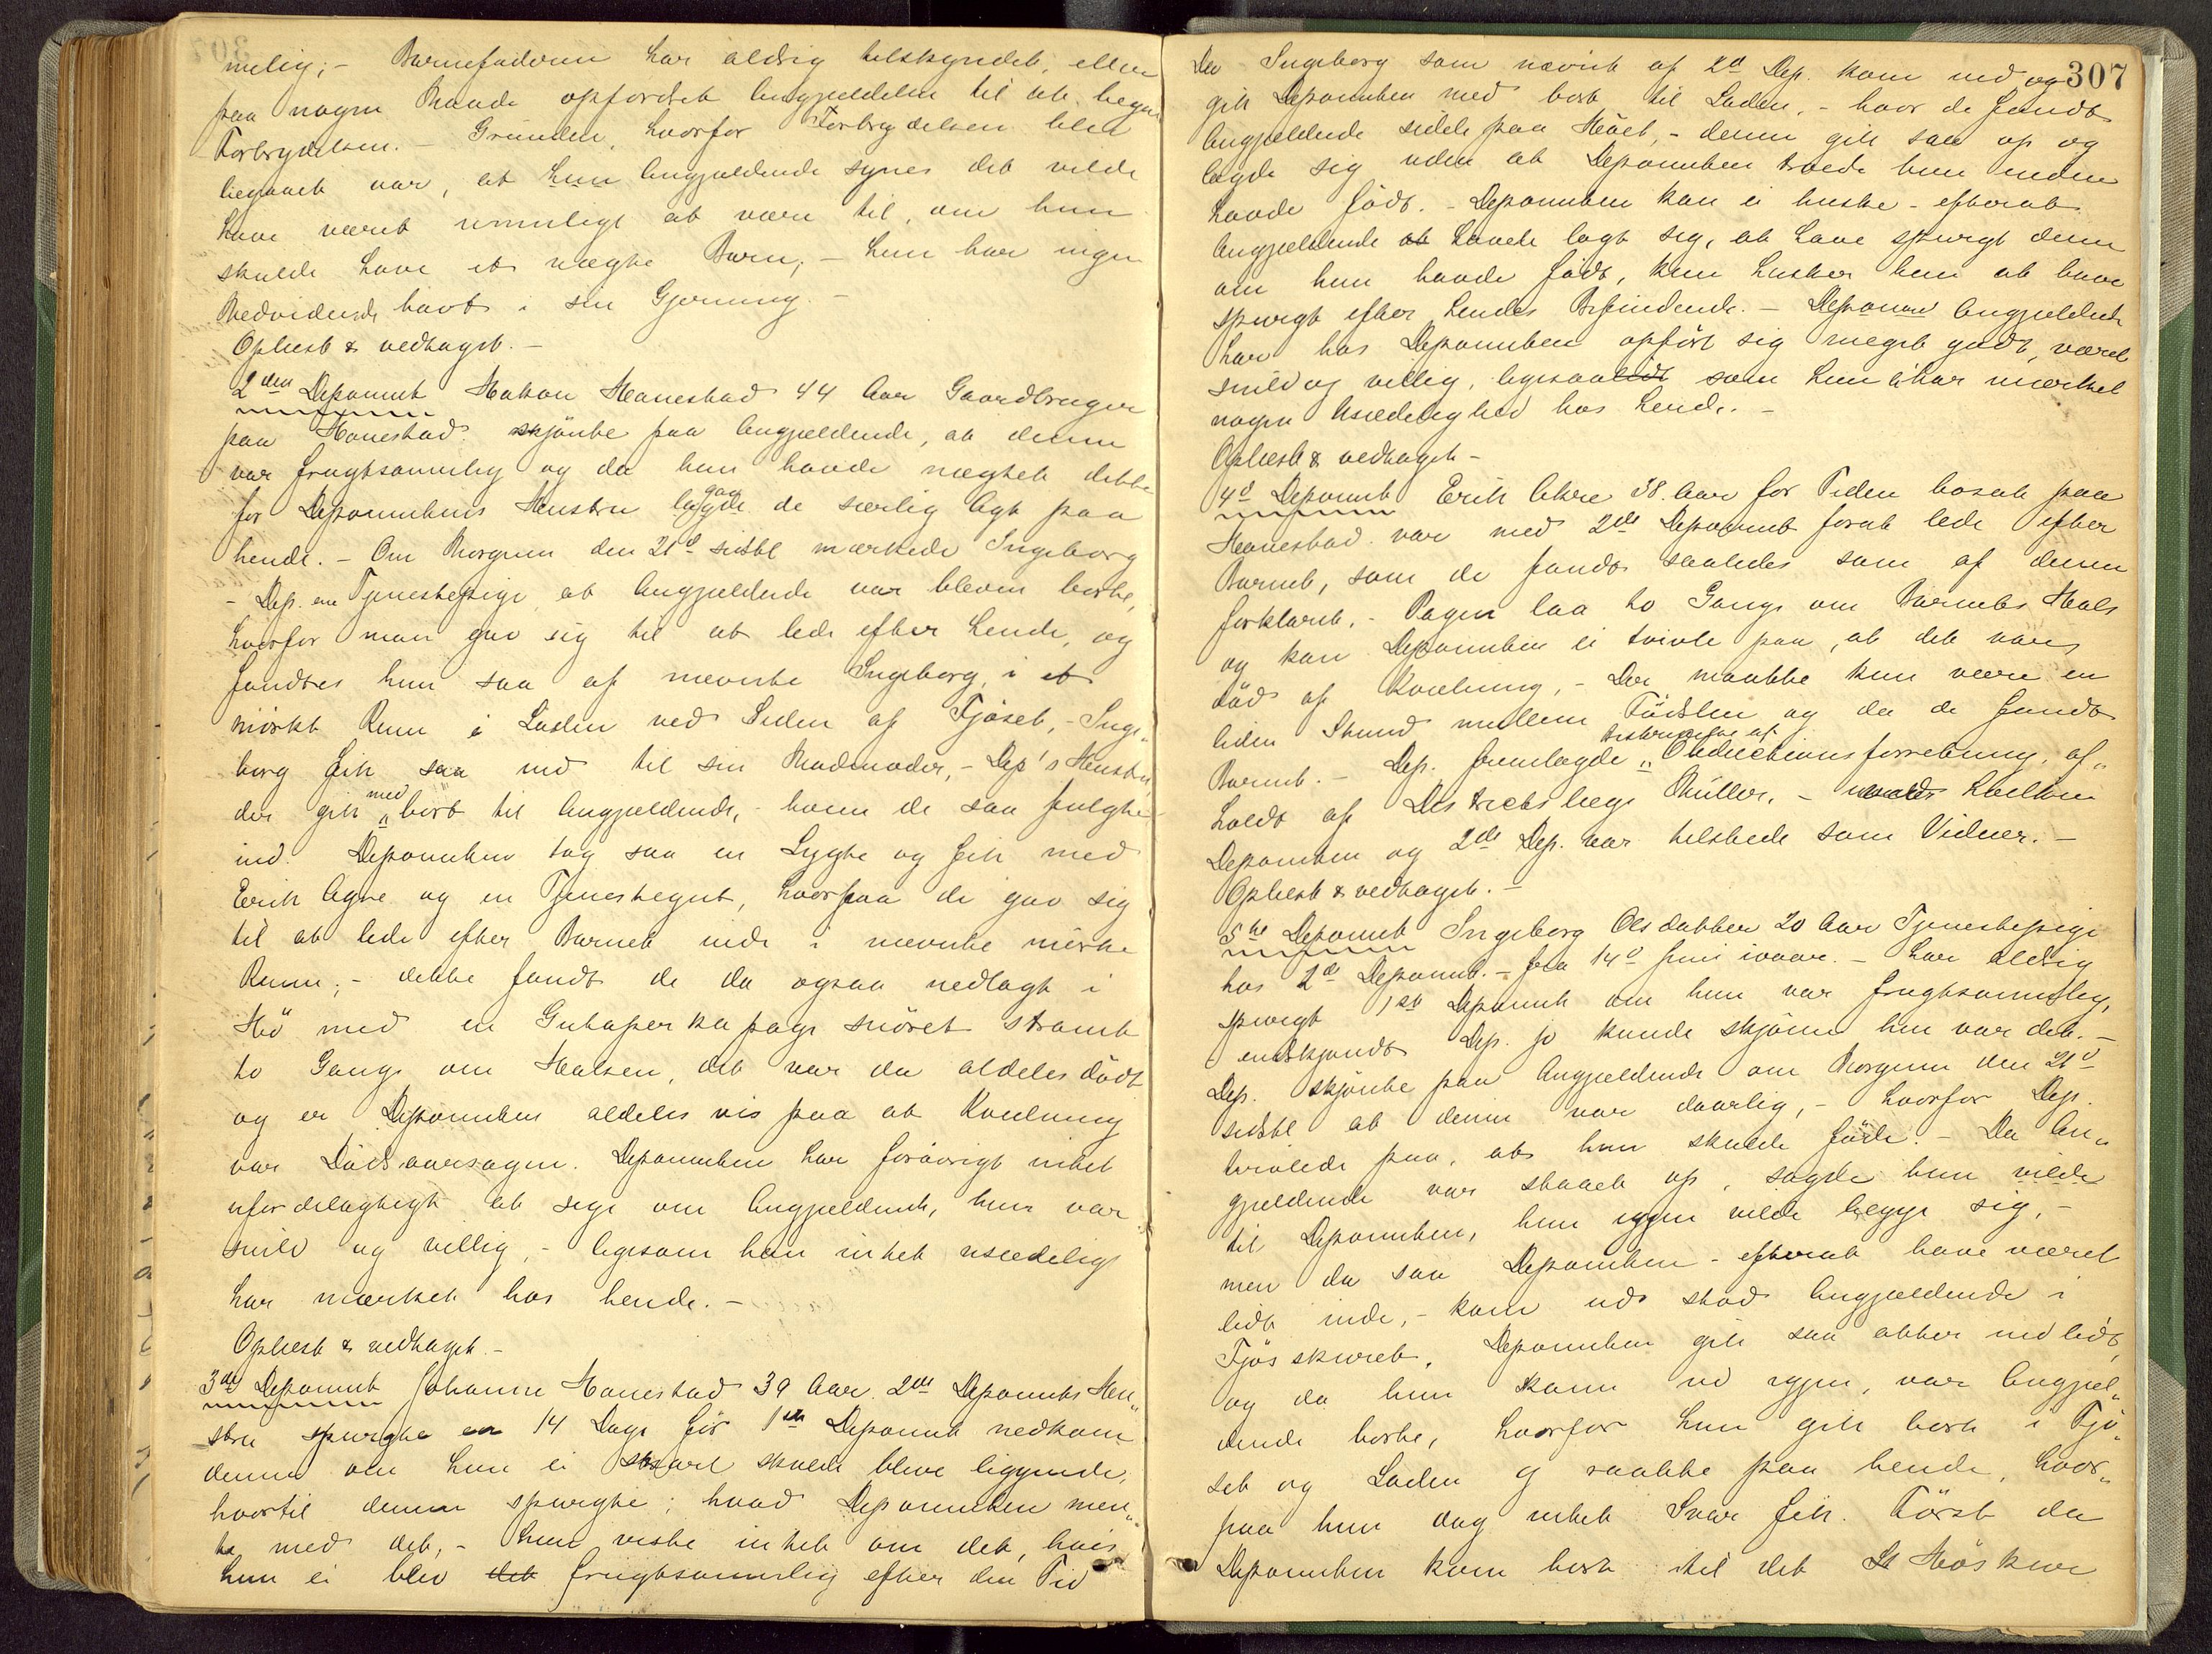 melig; – Barnefaderen har aldrig tilskyndet, eller
paa nogen Maade opfordret Angjældende til at begaa
Forbrydelsen. – Grunden, hvorfor Forbrydelsen blev
begaaet var, at hun Angjældende synes det vilde
have været umuligt at være til, om hun
skulde have et uægte Barn; – hun har ingen
Medvidende havt i sin Gjerning. –
Oplæst & vedtaget. –
2den Deponent Hakon Hanestad 44 Aar Gaardbruger
paa Hanestad skjønte paa Angjældende, at denne
var frugtsommelig og da hun havde nægtet dette
for Deponentens Hustru gav de særlig Agt paa
hende. – Om Morgenen den 21d sidstl mærkede Ingeborg
– Dep. en Tjenestepige at Angjældende var bleven borte,
hvorfor man gav sig til at lede efter hende, og
fandtes hun saa af nævnte Ingeborg, i et
mørkt Rum i Laden ved Siden af Fjøset, – Inge„
borg gik saa ind til sin Madmoder, – Dep's Hustru,
der gik med bort til Angjældende, – hvem de saa fulgte
ind. Deponenten tog saa en Lygte og gik med
Erik Agre og en Tjenestegut, hvorpaa de gav sig
til at lede efter Barnet inde i nævnte mørke
Rum; – dette fandt de da ogsaa nedlagt i
Hø med en Gutaperkapage snøret stramt
to Gange om Halsen, det var da aldeles dødt
og er Deponenten aldeles vis paa at Kvælning
var Dødsaarsagen. Deponenten har forøvrigt intet
ufordelagtigt at sige om Angjældende, hun var
snild og villig, – ligesom han intet usædeligt
har mærket hos hende. –
Oplæst & vedtaget. –
3de Deponent Johanne Hanestad 39 Aar. 2den Deponents Hu„
stru spurgte en 14 Dage før 1ste Deponent nedkom
denne om hun ei snart skulde blive liggende,
hvortil denne spurgte; hvad Deponenten men„
te med det, – hun viste intet om det, hvis
hun ei blev det frugtsommelig efter den Tid
307
Da Ingeborg som nævnt af 2d Dep. kom ind og
gik Deponenten med bort til Laden, – hvor de fandt
Angjældende sidde paa Høet, – denne gik saa op og
lagde sig uden at Deponenten troede hun endnu
havde født. – Deponenten kan ei huske – efterat
Angjældende at havde lagt sig, at have spurgt denne
om hun havde født, kun husker hun at have
spurgt efter hendes Befindende. – Deponen Angjældende
har hos Deponenten opført sig meget godt, været
snild og villig, ligesaalidt som hun har mærket
nogen Usædelighed hos hende. –
Oplæst & vedtaget –
4d Deponent Erik Akre 38. Aar for Tiden bosat paa
Hanestad var med 2de Deponent forat lede efter
Barnet, som de fandt saaledes som af denne
forklaret. – Pagen laa to Gange om Barnets Hals
og kan Deponenten ei tvivle paa, at det var
død af Kvælning, – Der maatte kun være en
liden Stund mellem Fødslen og da de fandt
Barnet. – Dep. fremlagde „Beskrivelse af Obductionsforretning, af„
holdt af Districtslæge Müller, – hvilken
Deponten og 2de Dep. var tilstede som Vidner. –
Oplæst & vedtaget. –
5te Deponent Ingeborg Olsdatter 20 Aar Tjenestepige
hos 2d Deponent. – fra 14d Juni iaar. – har aldrig
spurgt 1ste Deponent om hun var frugtsommelig,
endskjøndt Dep. jo kunde skjønne hun var det. –
Dep. skjønte paa Angjældende om Morgenen den 21d
sidstl at denne var daarlig, – hvorfor Dep.
tvivlede paa, at hun skulde føde. – Da An„
gjældende var staaet op, sagde hun vilde
til Deponenten, hun igjen vilde lægge sig, –
men da saa Deponenten – efterat have været
lidt inde, – kom ud stod Angjældende i
Fjøsskuret, Deponenten gik saa atter ind lidt,
og da hun kom ud igjen, var Angjæl„
dende borte, hvorfor hun gik bort i Fjø„
set og Laden og raabte paa hende, hvor„
paa hun dog intet Svar fik. Først da
Deponenten kom bort til det St Høskur